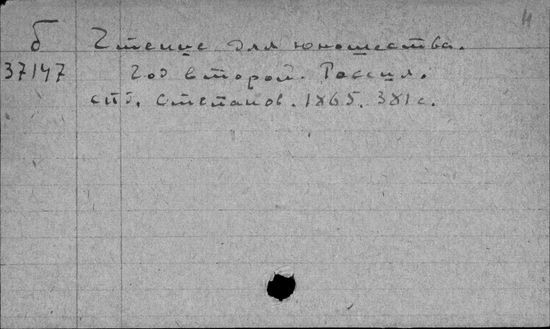 Ч
б Чтение для юношества.
37147 Год второй. Россия.
СПб, Степанов. 1865. 381 с.